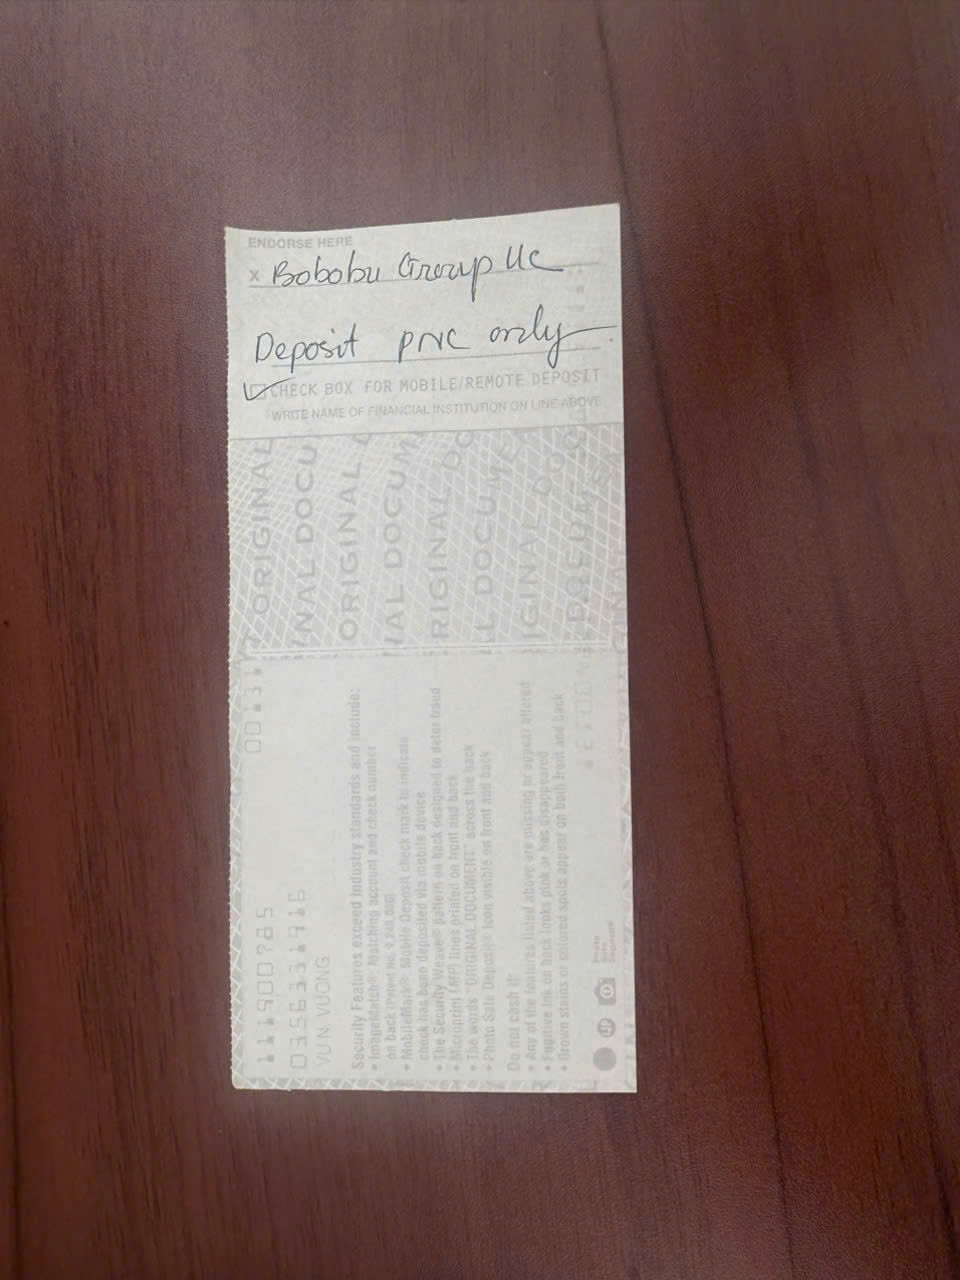 ENDORSE HERE
X Bobobu Group llc
Deposit PNC only
CHECK BOX FOR MOBILE/REMOTE DEPOSIT
WRITE NAME OF FINANCIAL INSTITUTION ON LINE ABOVE
ORIGINAL
NAL DOCU
ORIGINAL D
NAL DOCUM
RIGINAL DO
L DOCUME
IGINAL DOC
DOCUM
VUN VUONG
Security Features exceed industry standards and include:
• ImageMatch® Matching account and check number
on back (Patent No.
• MobileMark® Mobile Deposit check mark to indicate
check has been deposited via mobile device
• The Security Weave® pattern on back designed to deter fraud
• Microprint (MP) lines printed on front and back
• The words "ORIGINAL DOCUMENT" across the back
• Photo Safe Deposit® Icon visible on front and back
Do not cash if:
• Any of the features listed above are missing or appear altered
• Fugitive ink on back looks pink or has disappeared
• Brown stains or colored spots appear on both front and back
Photo
Safe
Deposit